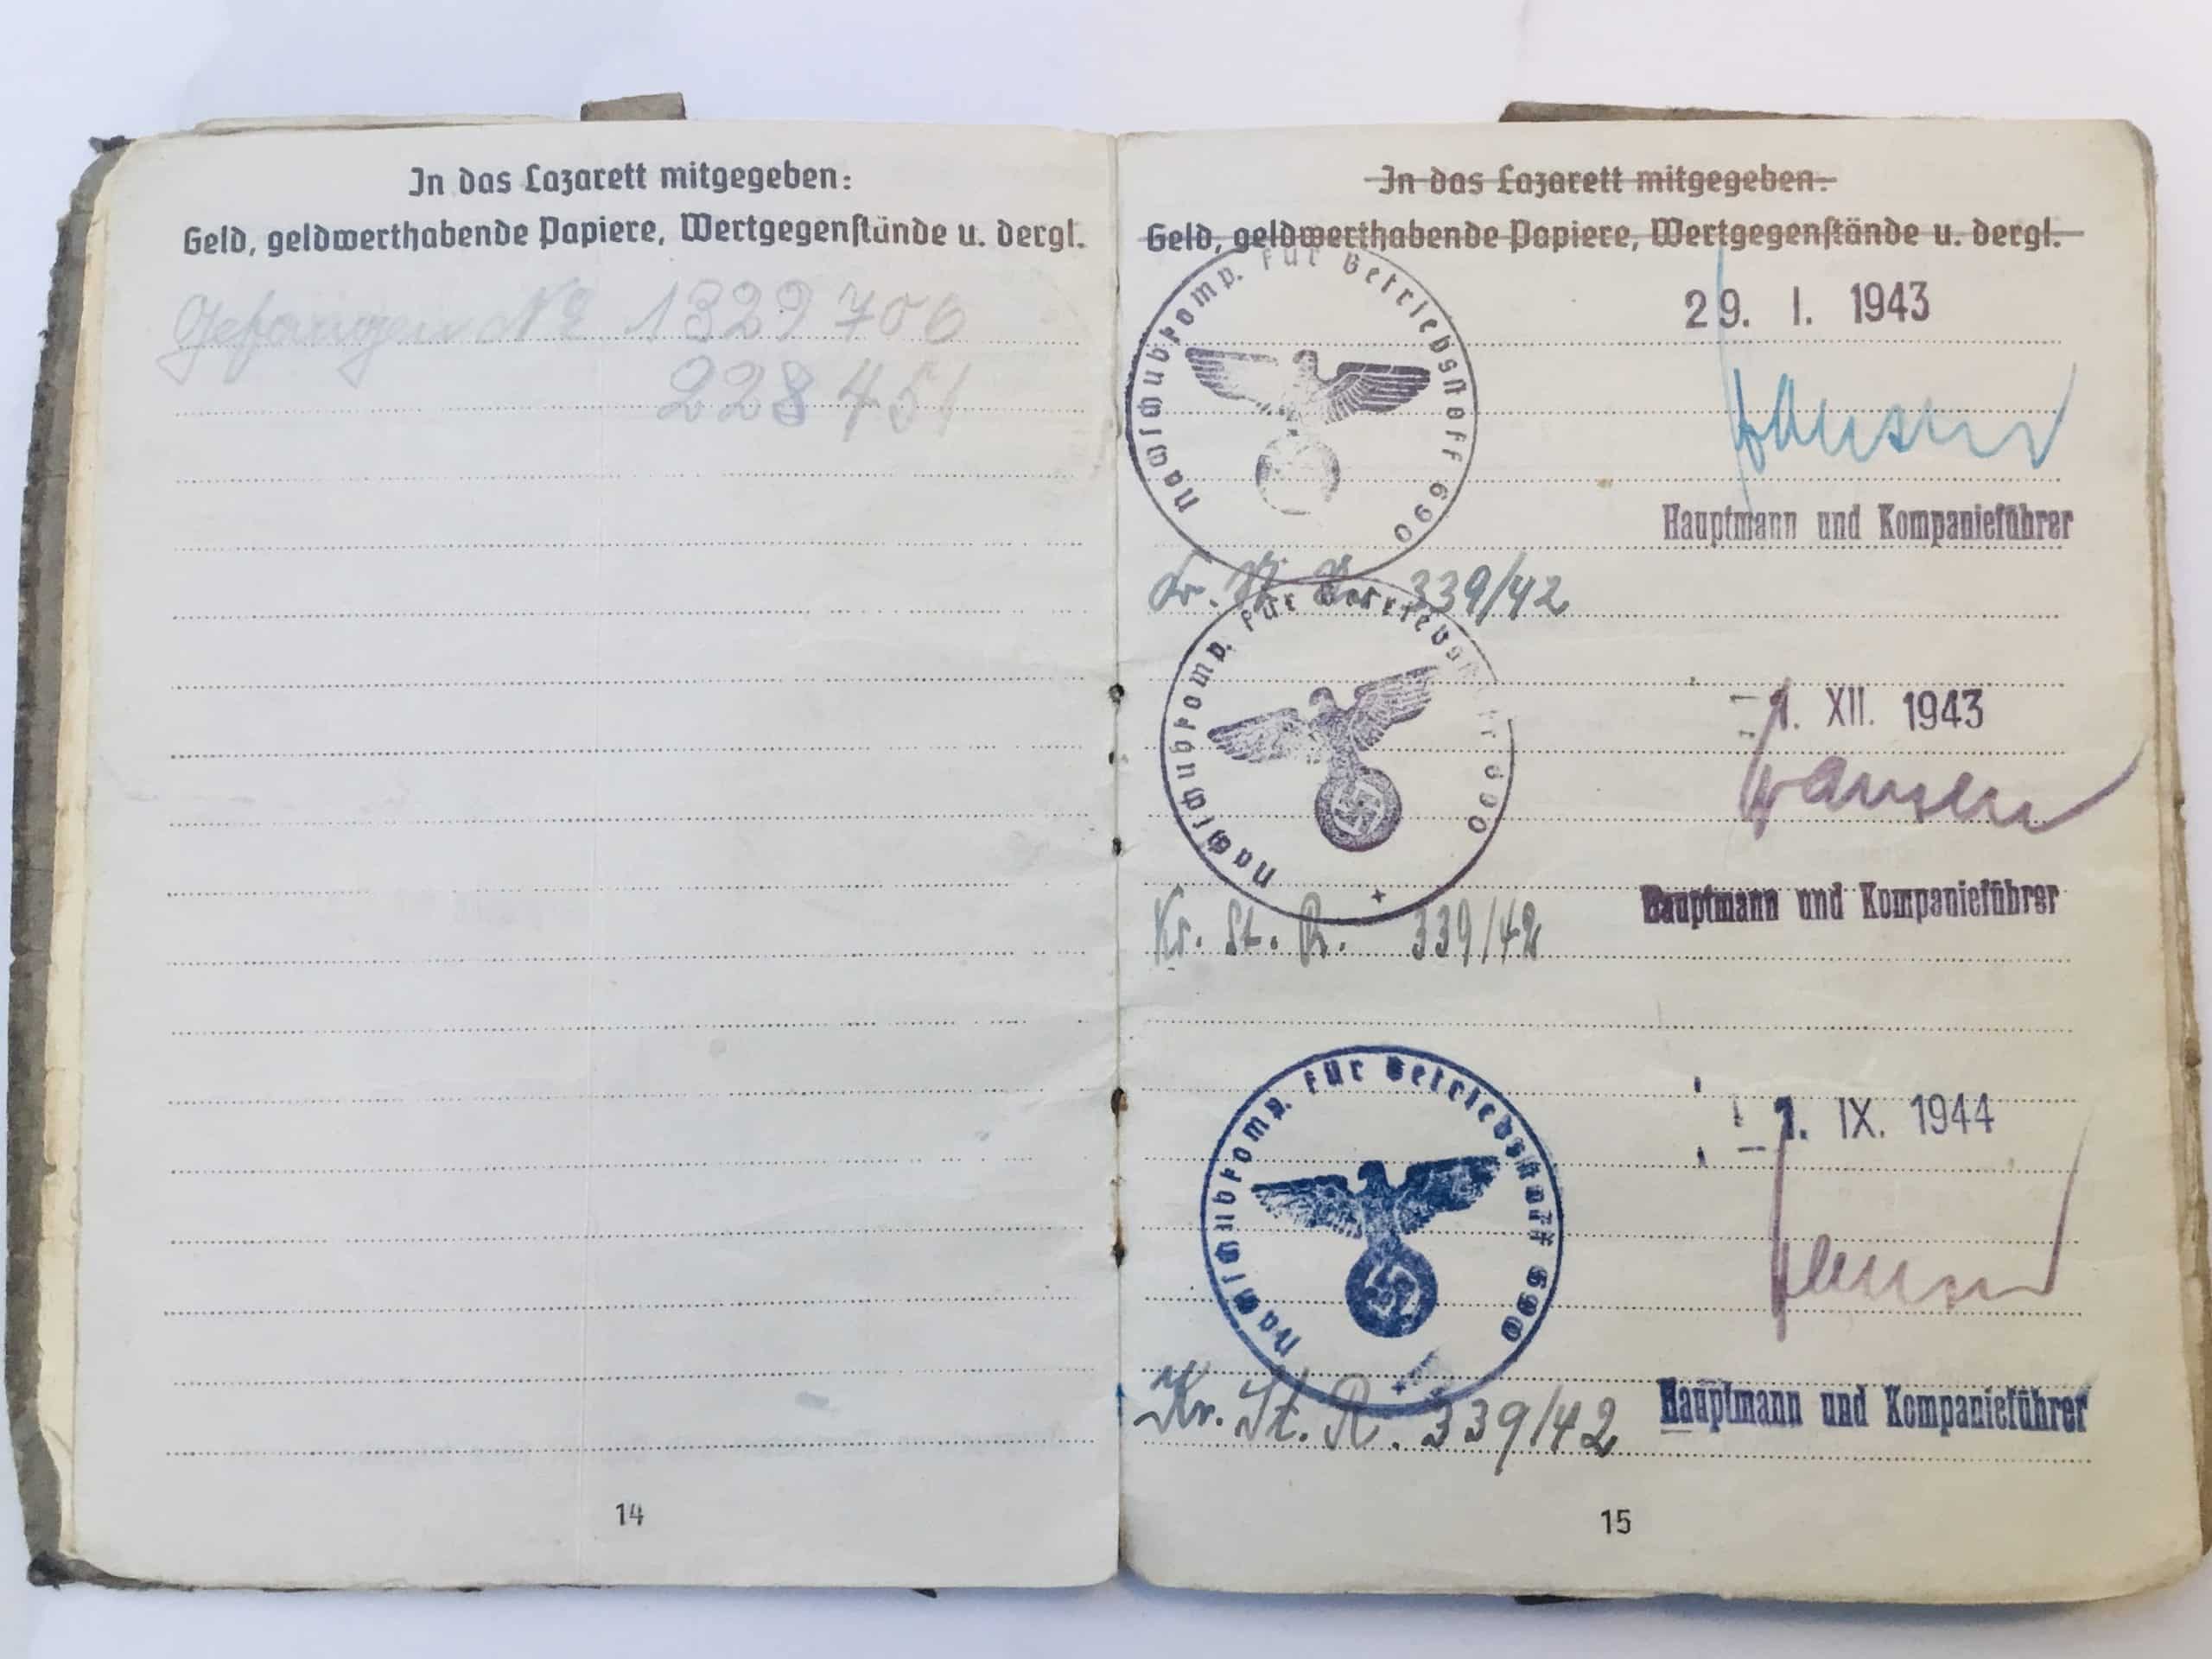 In das Lazarett mitgegeben:
Geld, geldwerthabende Papiere, Wertgegenstände u. dergl.
Gefangen No 1329700
228451
14
In das Lazarett mitgegeben:
Geld, geldwerthabende Papiere, Wertgegenstände u. dergl.
Nachschubkomp. für Betriebsstoff 690
29. I. 1943
Hauptmann und Kompanieführer
339/42
Nachschubkomp. für Betriebsstoff 690
1. XII. 1943
Hauptmann und Kompanieführer
Kr. St. R. 339/42
Nachschubkomp. für Betriebsstoff 690
1. IX. 1944
Hauptmann und Kompanieführer
Kr. St. R. 339/42
15